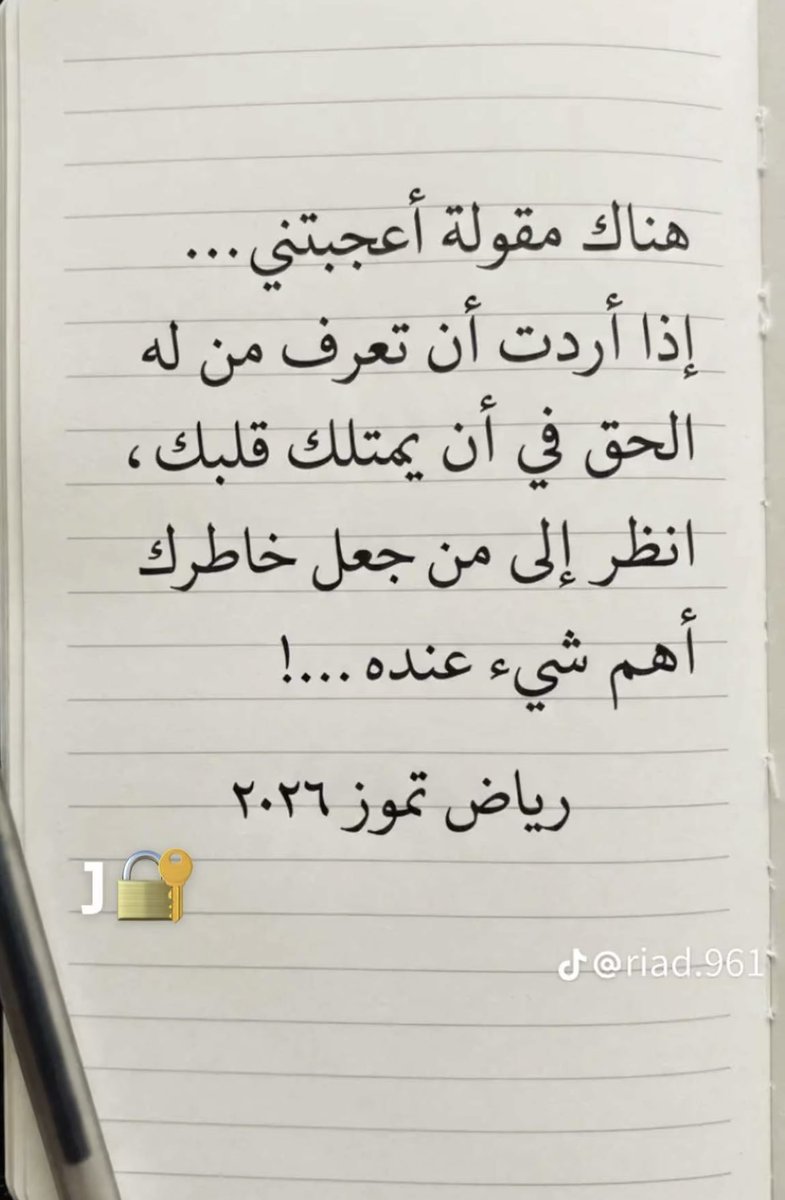 هناك مقولة أعجبتني...
إذا أردت أن تعرف من له
الحق في أن يمتلك قلبك،
انظر إلى من جعل خاطرك
أهم شيء عنده ...!
رياض تموز ٢٠٢٦
J
@riad.961